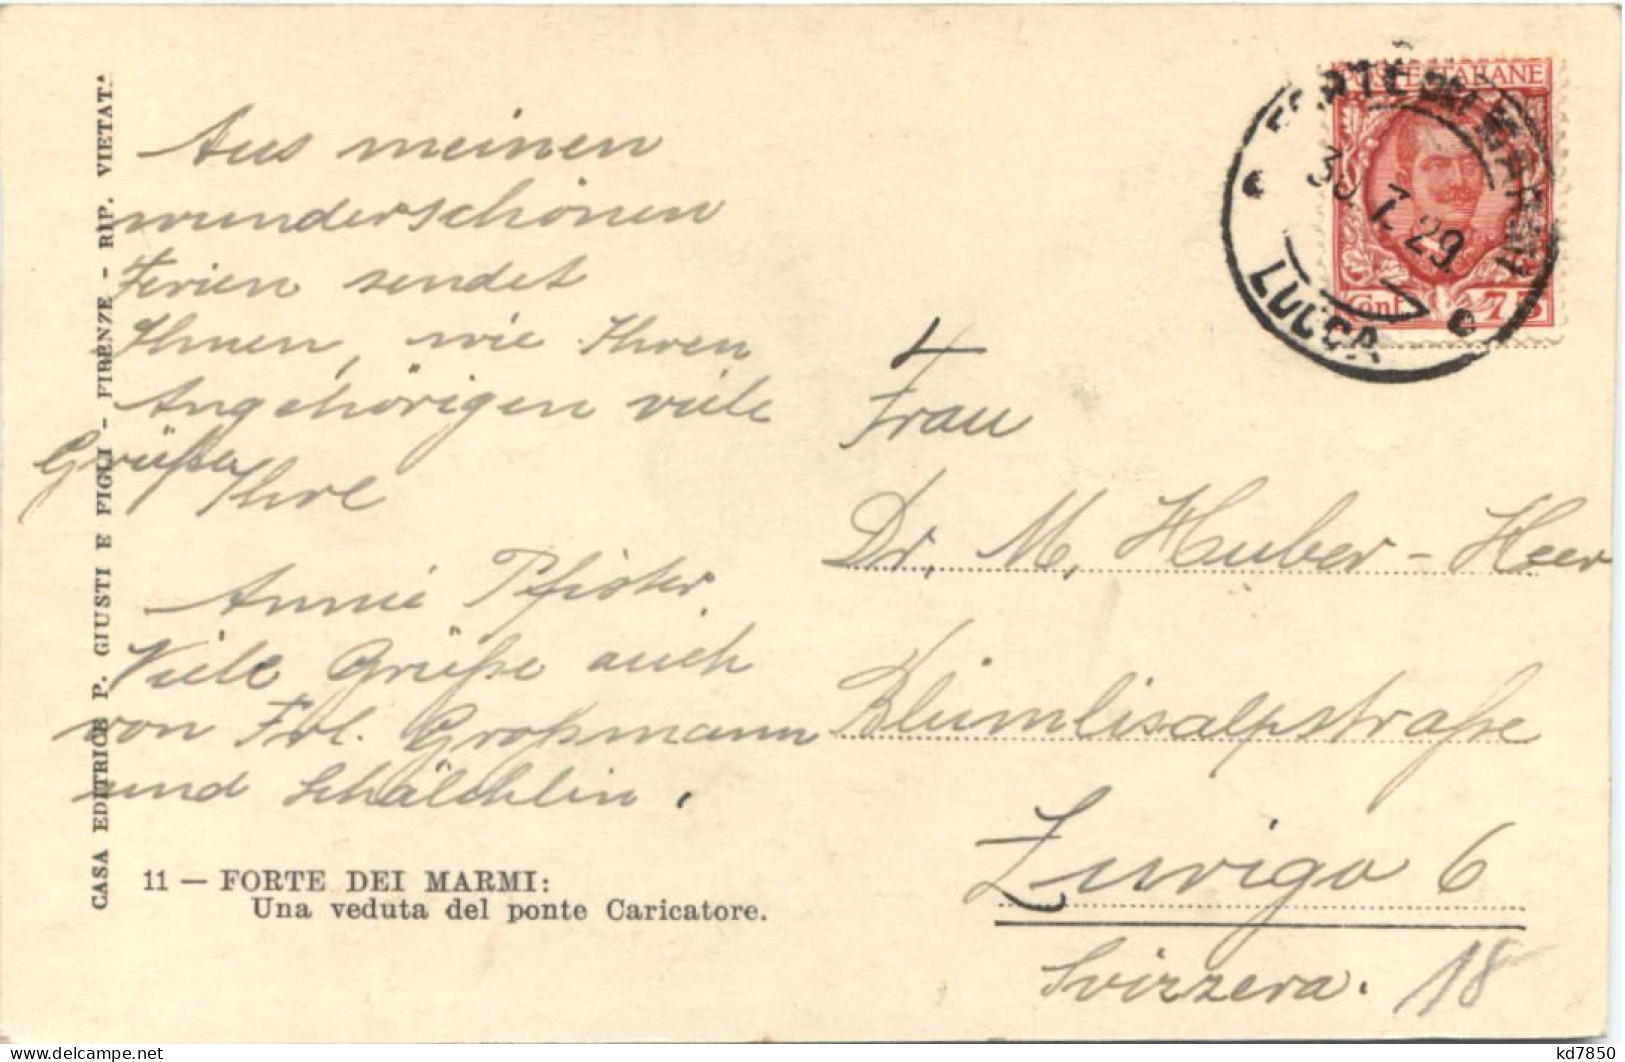 CASA EDITRICE P. GIUSTI E FIGLI - FIRENZE - RIP. VIETATA
Aus meinen
wunderschönen
Ferien sendet
Ihnen, wie Ihren
Angehörigen viele
Grüße
Ihre
Annie Pfister.
Viele Grüße auch
von Frl. Großmann
und Schälchlin.
11 — FORTE DEI MARMI:
Una veduta del ponte Caricatore.
POSTE ITALIANE
Cent. 75
FORTE DEI MARMI
30.7.29
LUCCA
Frau
Dr. M. Huber-Heer
Blümlisalpstraße
Zurigo 6
Svizzera.
18
kd7850